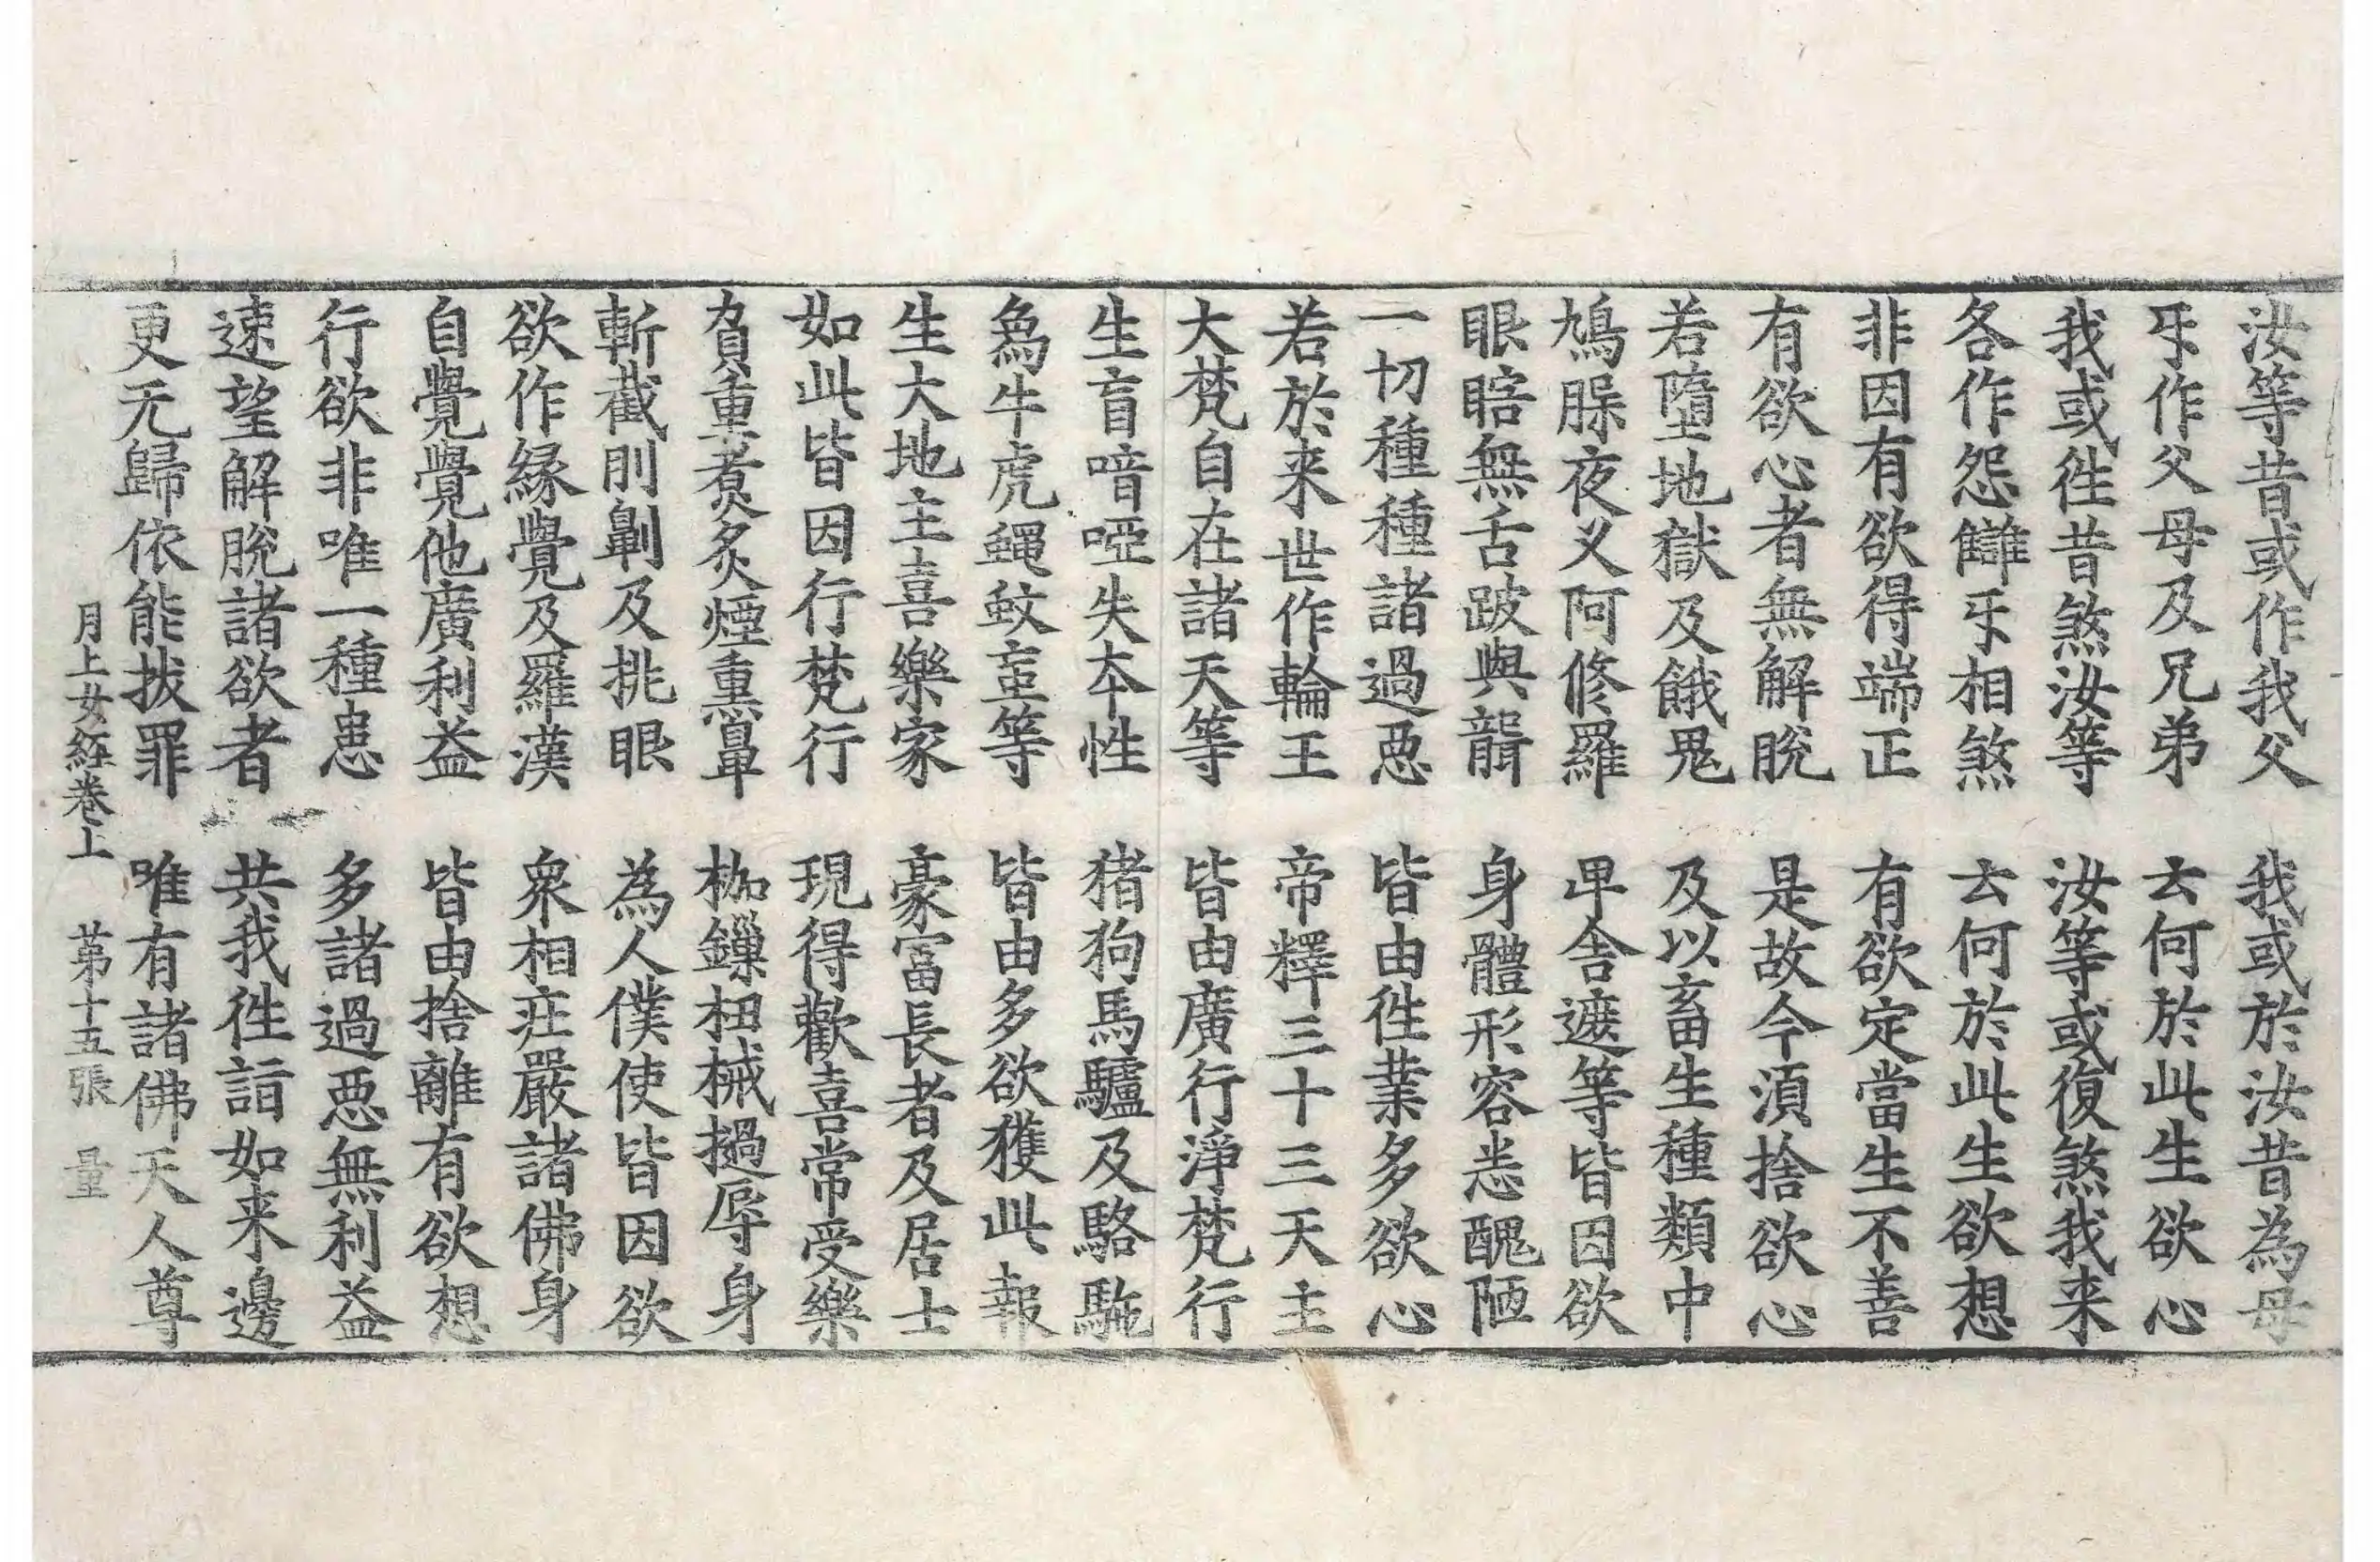 汝等昔或作我父　我或於汝昔為母
㸦作父母及兄弟　云何於此生欲心
我或徃昔煞汝等　汝等或復煞我来
各作怨讎㸦相煞　云何於此生欲想
非因有欲得端正　有欲定當生不善
有欲心者無解脫　是故今湏捨欲心
若墮地獄及餓鬼　及以畜生種類中
鳩脲夜叉阿修羅　毘舍遮等皆因欲
眼瞎無舌跛與聾　身體形容悉醜陋
一切種種諸過惡　皆由徃業多欲心
若於来世作輪王　帝釋三十三天主
大梵自在諸天等　皆由廣行淨梵行
生盲喑啞失夲性　猪狗馬驢及駱駞
為牛虎蠅蚊䖟等　皆由多欲獲此報
生大地主喜樂家　豪富長者及居士
如此皆因行梵行　現得歡喜常受樂
負重煑炙煙熏鼻　枷鏁杻械撾辱身
斬截刖劓及挑眼　為人僕使皆因欲
欲作緣覺及羅漢　衆相庄嚴諸佛身
自覺覺他廣利益　皆由捨離有欲想
行欲非唯一種患　多諸過惡無利益
速望解脫諸欲者　共我徃詣如来邊
更无歸依能拔罪　唯有諸佛天人尊
月上女経卷上　苐十五張　量